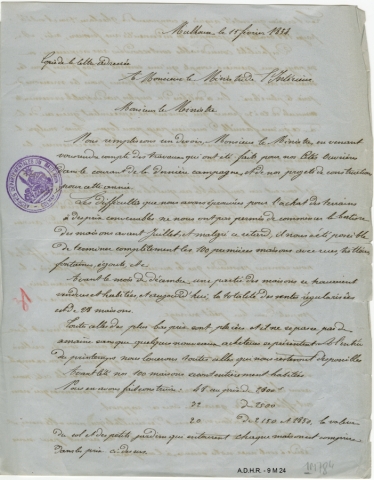 Mulhouse, le 11 février 1854
Copie de la lettre adressée
à Monsieur le Ministre de l'Intérieur
Monsieur le Ministre
Nous remplissons un devoir, Monsieur le Ministre, en venant
vous rendre compte des travaux qui ont été faits pour nos Cités Ouvrières
dans le courant de la dernière campagne, et d'un projet de construction
pour cette année.
Les difficultés que nous avons éprouvées pour l'achat des terrains
à des prix convenables ne nous ont pas permis de commencer la bâtisse
des maisons avant Juillet et malgré ce retard, il nous a été possible
de terminer complètement les 100 premières maisons avec rues,
fontaines, égouts, etc.
Avant le mois de décembre, une partie des maisons se trouvaient
vendues et habitées et aujourd'hui, la totalité des ventes régularisées
est de maisons.
Toutes celles des plus bas prix sont placées et il ne se passe pas de
semaine sans que quelques nouveaux acheteurs se présentent. A l'entrée
du printemps nous louerons toutes celles qui nous resteront disponibles
Avant l'été nos 100 maisons seront entièrement habitées
Nous en avons fait construire : 48 au prix de
32 d°
20 d° de et , la valeur
du sol et des petits jardins qui entourent chaque maison est comprise
dans les prix ci-dessus.
A.D.H.R. - 9 M 24